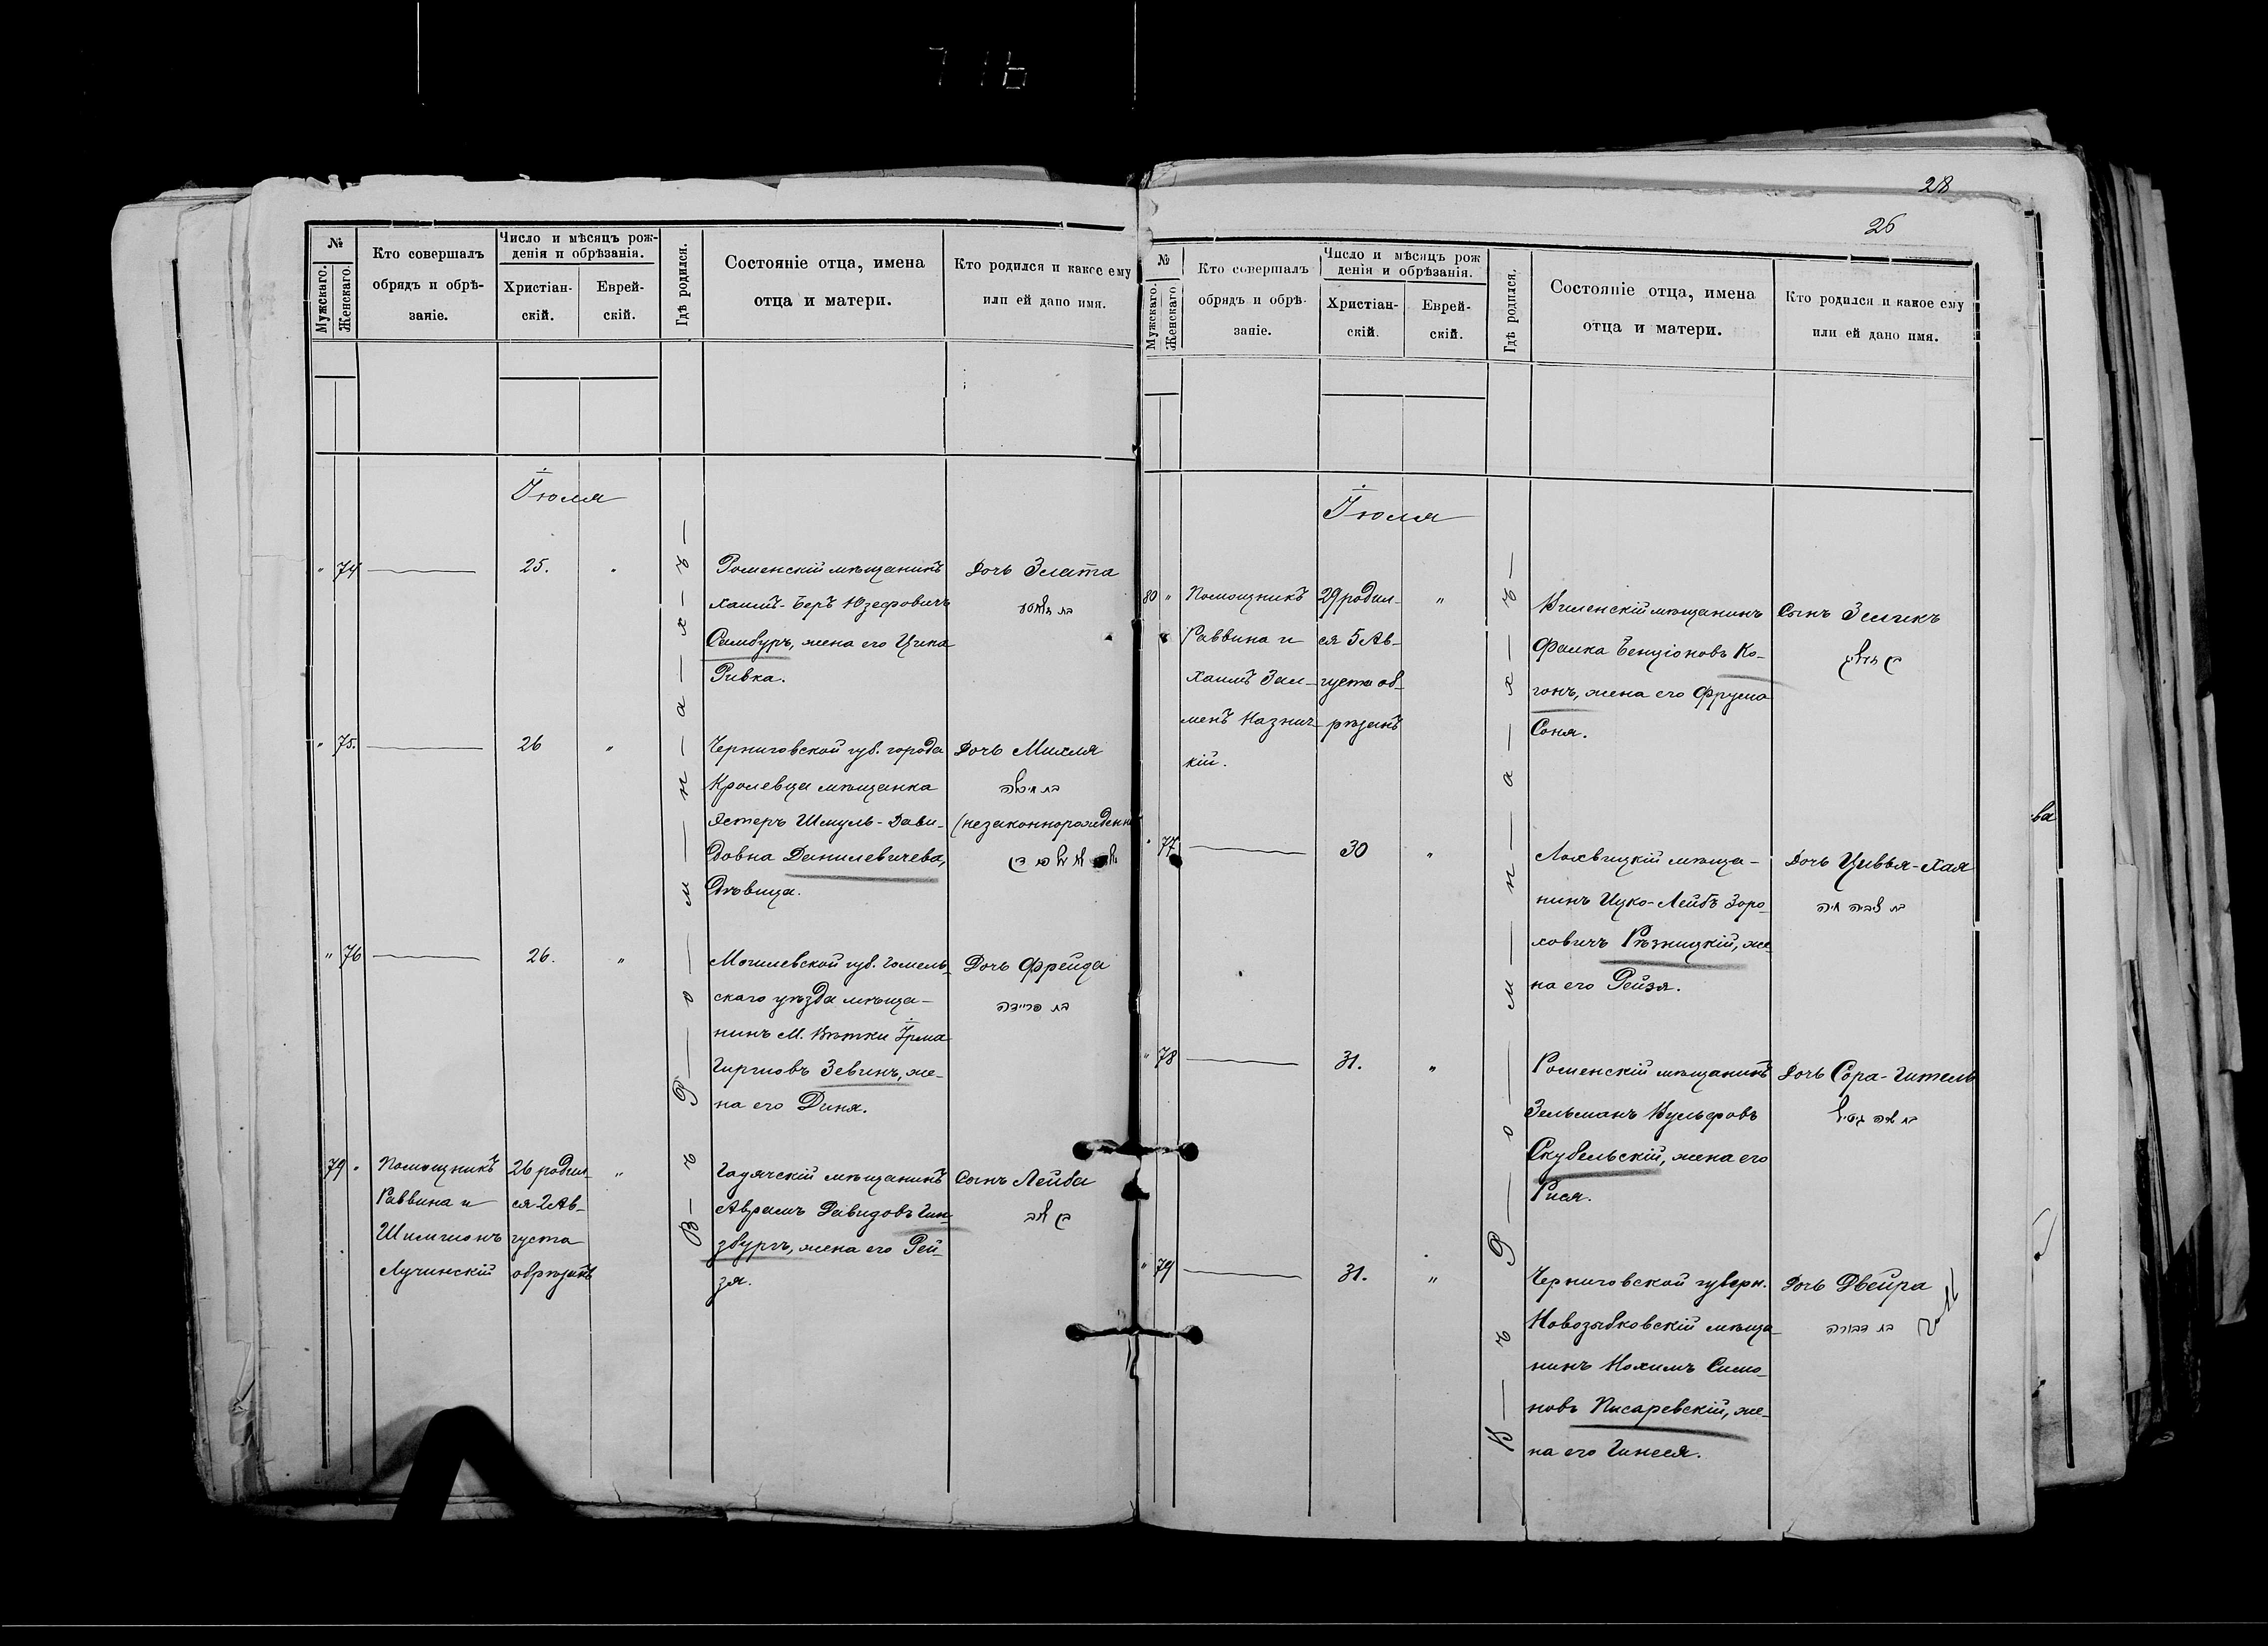 28
26
№
Мужскаго.
Женскаго.
Кто совершалъ
обрядъ и обрѣ-
заніе.
Число и мѣсяцъ рож-
денія и обрѣзанія.
Христіан-
скій.
Еврей-
скій.
Гдѣ родился.
Состояніе отца, имена
отца и матери.
Кто родился и какое ему
или ей дано имя.
Іюля
Въ Ромнахъ
" 74
25.
"
Роменскій мѣщанинъ
Хаимъ-Беръ Юзефовичъ
Самбуръ, жена его Ципа
Ривка.
Дочь Злата
" 75.
26
"
Черниговской губ. города
Кролевца мѣщанка
Эстеръ Шмуль-Дави-
довна Данилевичева,
Дѣвица.
Дочь Михля
בת מיכלה
(незаконнорожденн
" 76
26.
"
Могилевской губ. Гомель-
скаго уѣзда мѣща-
нинъ М. Вѣтки Ірма
Гиршовъ Зевинъ, же-
на его Диня.
Дочь Фрейда
בת פריידה
79 "
Помощникъ
Раввина и
Шимшонъ
Лучинскій
26 родил-
ся 2 Ав-
густа
обрѣзанъ
"
Гадячскій мѣщанинъ
Аврамъ Давидовъ Гин-
збургъ, жена его Рей-
зя.
Сынъ Лейба
בן ליב
№
Мужскаго.
Женскаго
Кто совершалъ
обрядъ и обрѣ-
заніе.
Число и мѣсяцъ рож
денія и обрѣзанія.
Христіан-
скій.
Еврей-
скій.
Гдѣ родился.
Состояніе отца, имена
отца и матери.
Кто родился и какое ему
или ей дано имя.
Іюля
Въ Ромнахъ
80 "
Помощникъ
Раввина и
Хаимъ Зал-
менъ Казнич-
кій.
29 родил-
ся 5 Ав-
густа об-
рѣзанъ
"
Виленскій мѣщанинъ
Фалка Бенціоновъ Ко-
гонъ, жена его Фрума
Соня.
Сынъ Зеликъ
בן זעליג
" 77
30
"
Лохвицкій мѣща-
нинъ Ицко-Лейбъ Зоро-
ховичъ Рѣзницкій, же-
на его Рейзя.
Дочь Цивья-Хая
בת צביה חיה
" 78
31.
"
Роменскій мѣщанинъ
Зельманъ Вульфовъ
Скубельскій, жена его
Рися.
Дочь Сора-Гитель
בת שרה גיטיל
" 79
31.
"
Черниговской губерн.
Новозыбковскій мѣща-
нинъ Нохимъ Симо-
новъ Писаревскій, же-
на его Гинеся.
Дочь Двейра
בת דבורה
ва